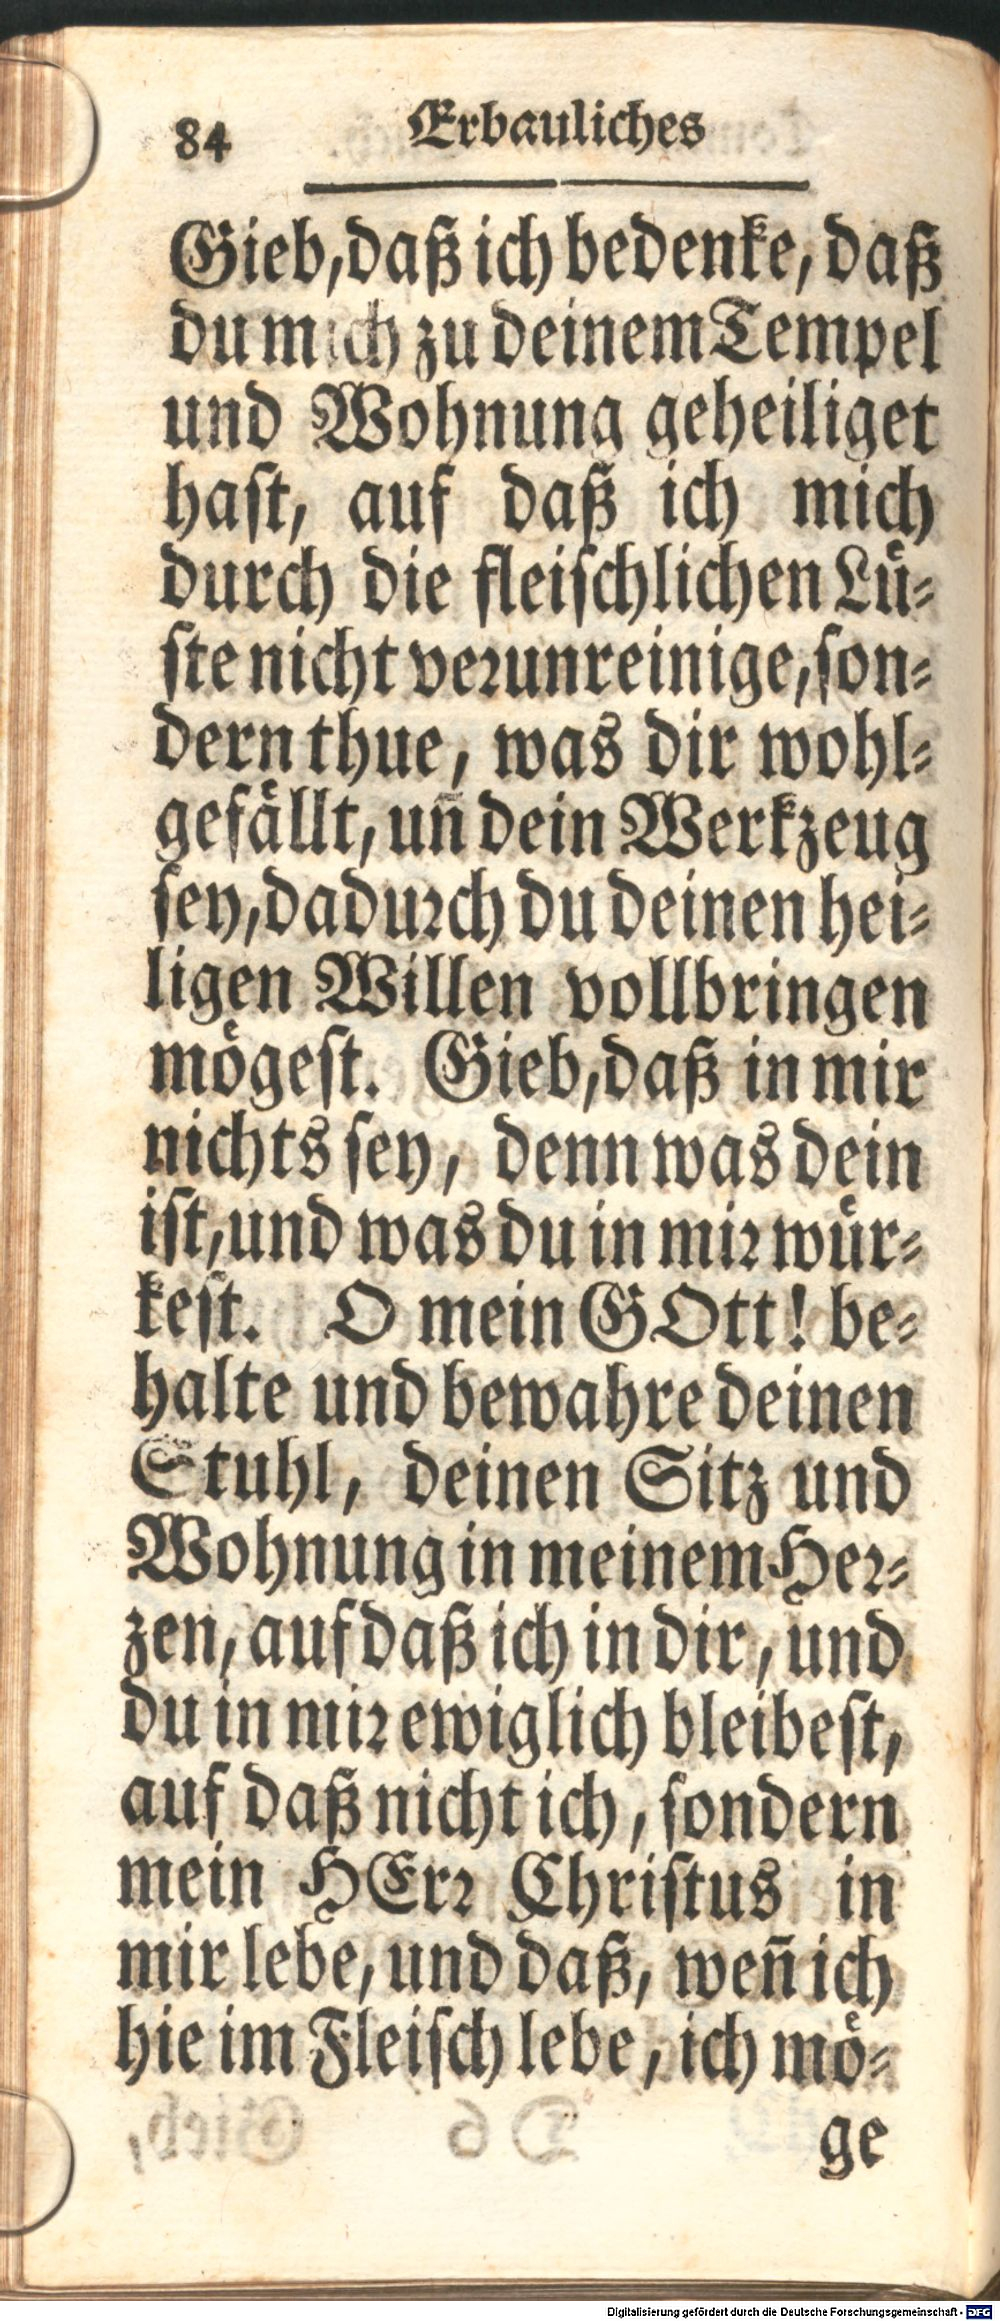 84 Erbauliches
Gieb, daß ich bedenke, daß
du mich zu deinem Tempel
und Wohnung geheiliget
haſt, auf daß ich mich
durch die fleiſchlichen Luͤ⸗
ſte nicht verunreinige, ſon⸗
dern thue, was dir wohl⸗
gefaͤllt, un̄ dein Werkzeug
ſey, dadurch du deinen hei⸗
ligen Willen vollbringen
moͤgeſt. Gieb, daß in mir
nichts ſey, denn was dein
iſt, und was du in mir wuͤr⸗
keſt. O mein GOtt! be⸗
halte und bewahre deinen
Stuhl, deinen Sitz und
Wohnung in meinem Her⸗
zen, auf daß ich in dir, und
du in mir ewiglich bleibeſt,
auf daß nicht ich, ſondern
mein HErr Chriſtus in
mir lebe, und daß, wen̄ ich
hie im Fleiſch lebe, ich moͤ⸗
ge
Digitalisierung gefördert durch die Deutsche Forschungsgemeinschaft - DFG